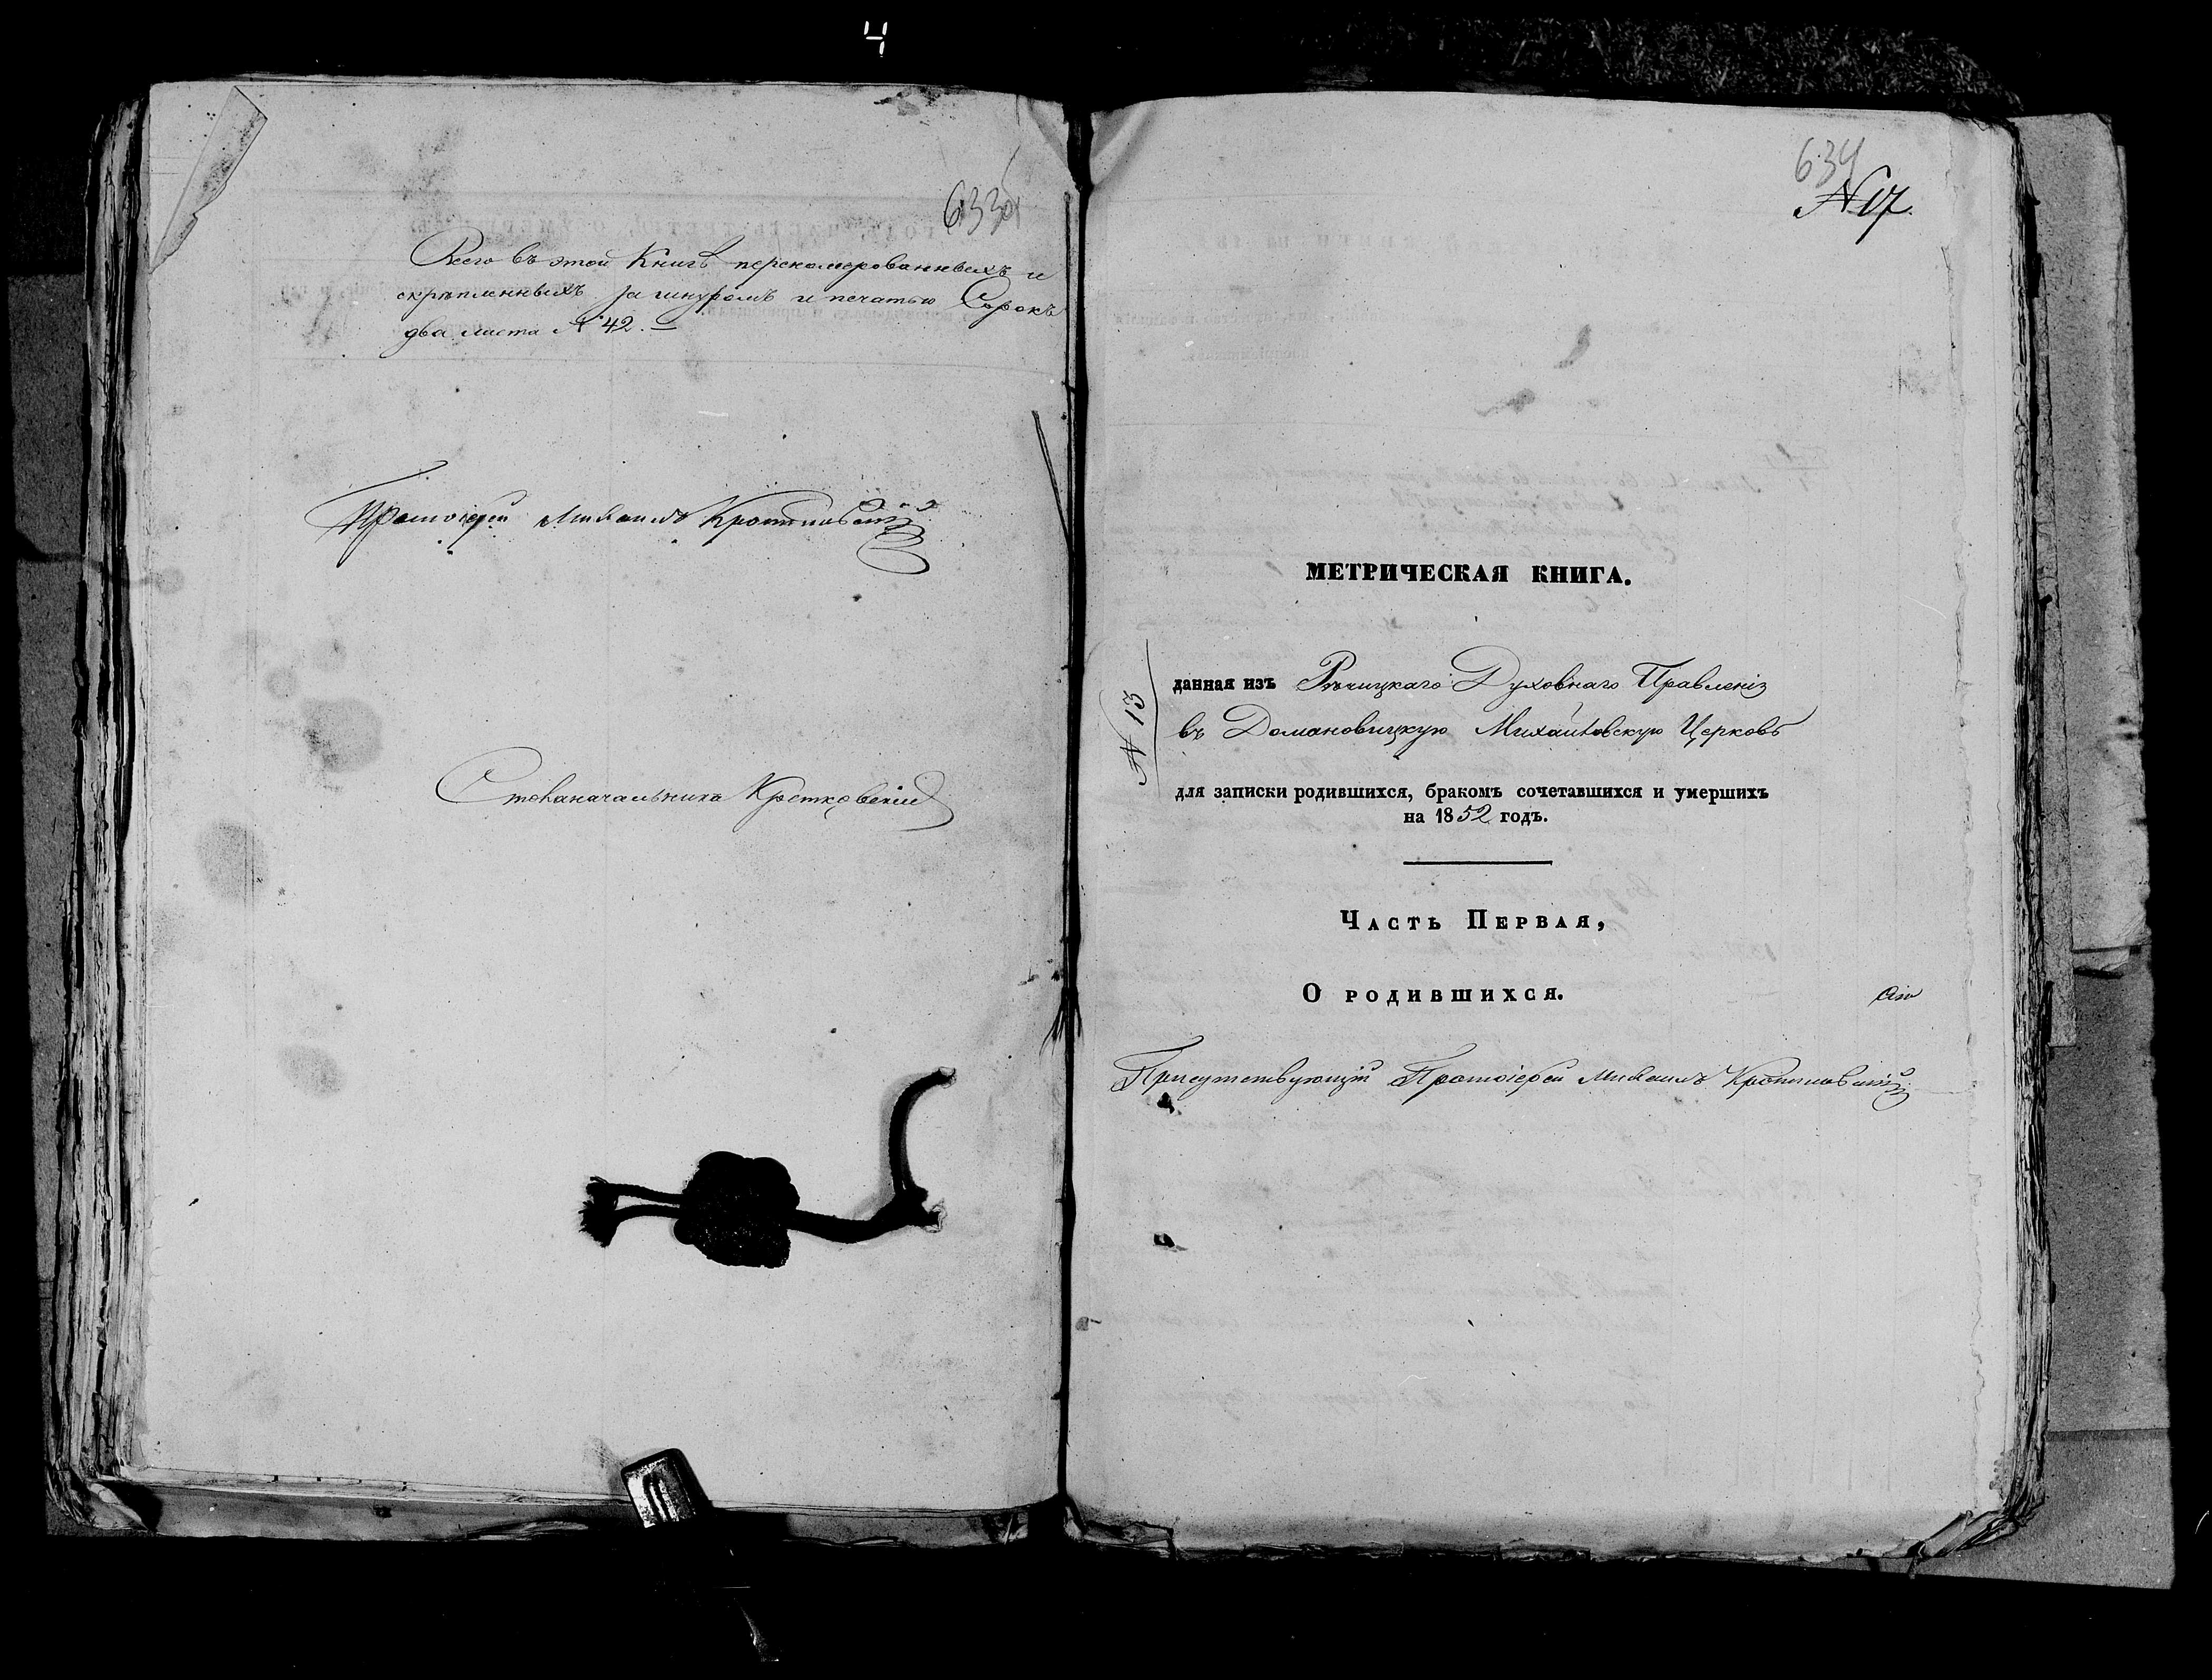 4
633об
Всего въ этой Книгѣ перенумерованныхъ и
скрѣпленныхъ за шнуромъ и печатью Сорокъ
два листа № 42. —
Протоіерей Михаилъ
Столоначальникъ
634
N 17.
МЕТРИЧЕСКАЯ КНИГА.
N 13
данная изъ Рѣчицкаго Духовнаго Правленія
въ Домановицкую Михайловскую Церковь
для записки родившихся, бракомъ сочетавшихся и умершихъ
на 1852 годъ.
Часть Первая,
О родившихся.
Присутствующій Протоіерей Михаилъ